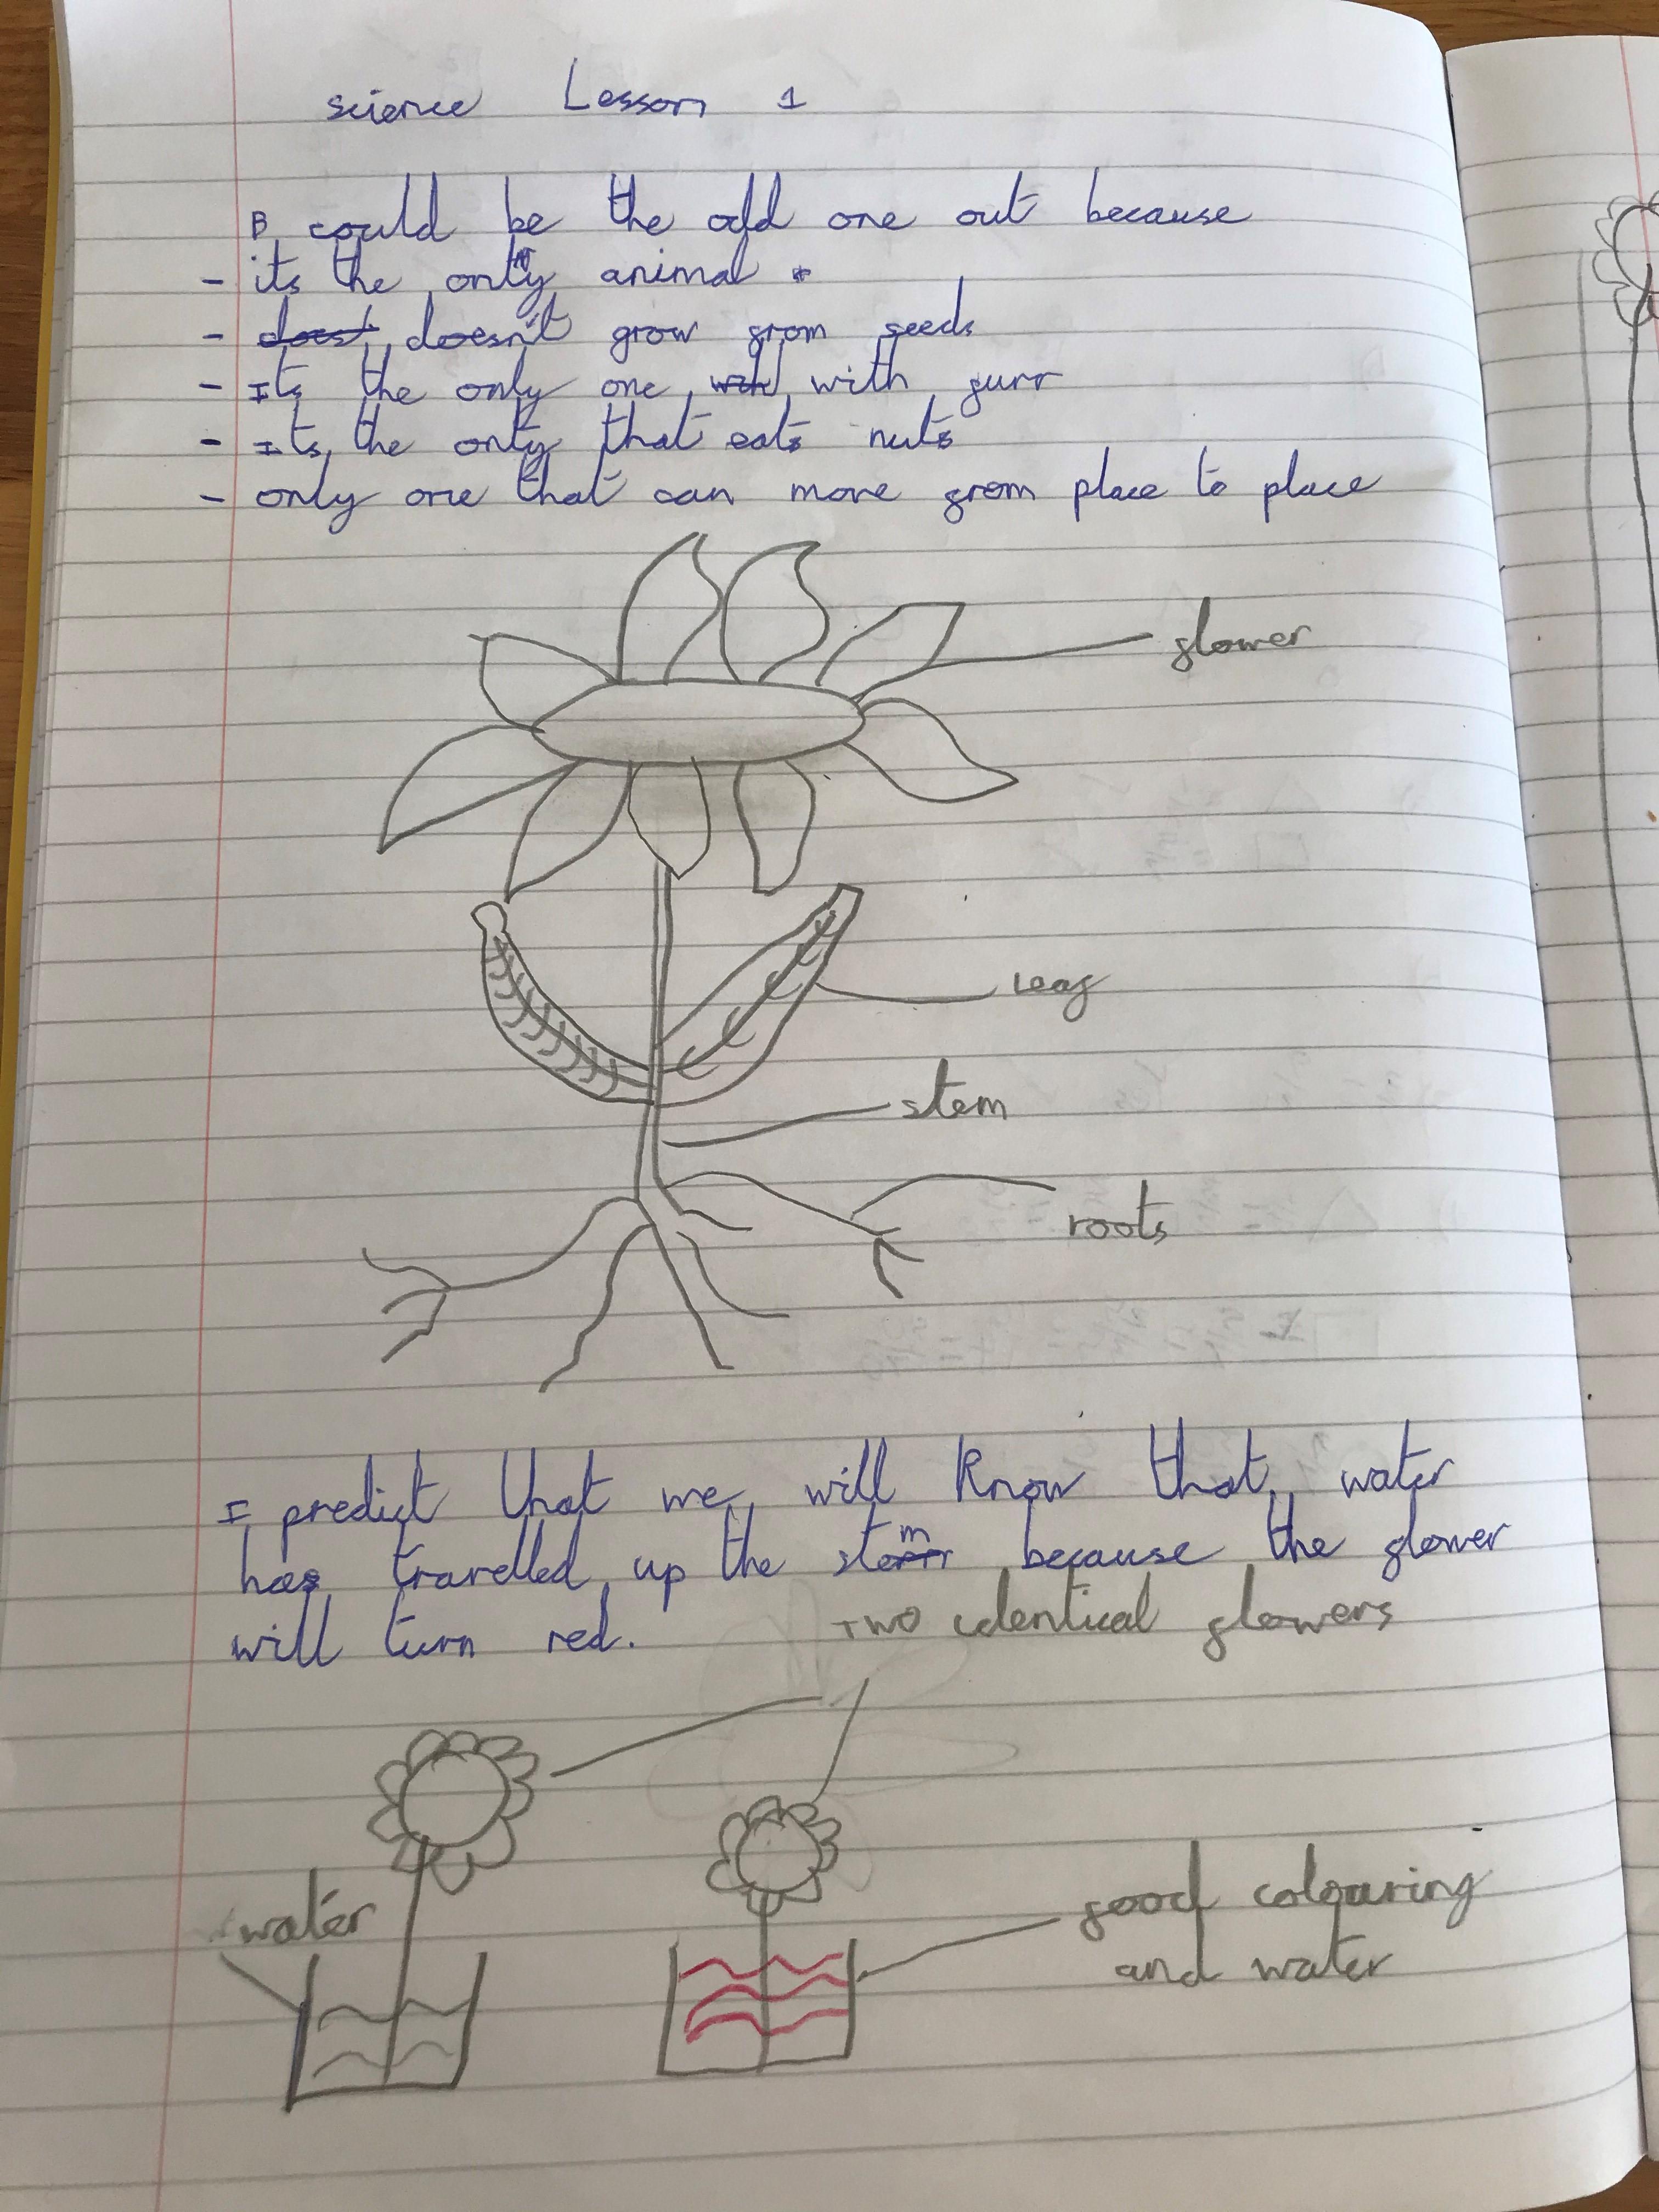 science Lesson 1
B could be the odd one out because
- its the only animal.
- doest doesn't grow from seeds
- Its the only one with furr
- Its the only that eats nuts
- only one that can move from place to place
flower
leaf
stem
roots
I predict that we will know that water
has travelled up the stem because the flower
will turn red.
two identical flowers
water
food colouring
and water